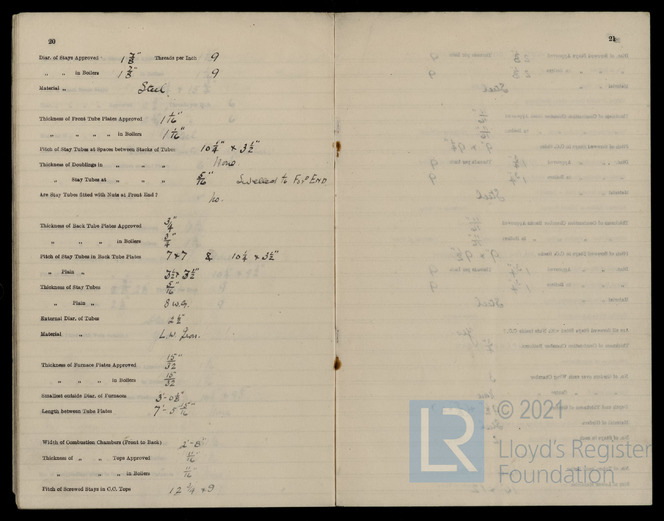 20
Diar. of Stays Approved 1 7/8" Threads per Inch 9
" " in Boilers 1 7/8" 9
Material " Steel
Thickness of Front Tube Plates Approved 1 1/16"
" " " " in Boilers 1 1/16"
Pitch of Stay Tubes at Spaces between Stacks of Tubes 10 1/4" x 3 1/2"
Thickness of Doublings in " " " None
" Stay Tubes at " " 5/16" Swelled to FOR END
Are Stay Tubes fitted with Nuts at Front End? No.
Thickness of Back Tube Plates Approved 3/4"
" " " in Boilers 3/4"
Pitch of Stay Tubes in Back Tube Plates 7 x 7 & 10 1/4 x 3 1/2"
" Plain " 3 1/2 x 3 1/2"
Thickness of Stay Tubes 5/16"
" Plain " 8 W.G.
External Diar. of Tubes 2 1/2"
Material " L.W. Iron.
Thickness of Furnace Plates Approved 15/32"
" " " in Boilers 15/32
Smallest outside Diar. of Furnaces
Length between Tube Plates
Width of Combustion Chambers (Front to Back)
Thickness of " " Tops Approved 11/16"
" " " in Boilers 11/16"
Pitch of Screwed Stays in C.C. Tops 12 1/4 x 9
21
© 2021
LR
Lloyd's Register
Foundation